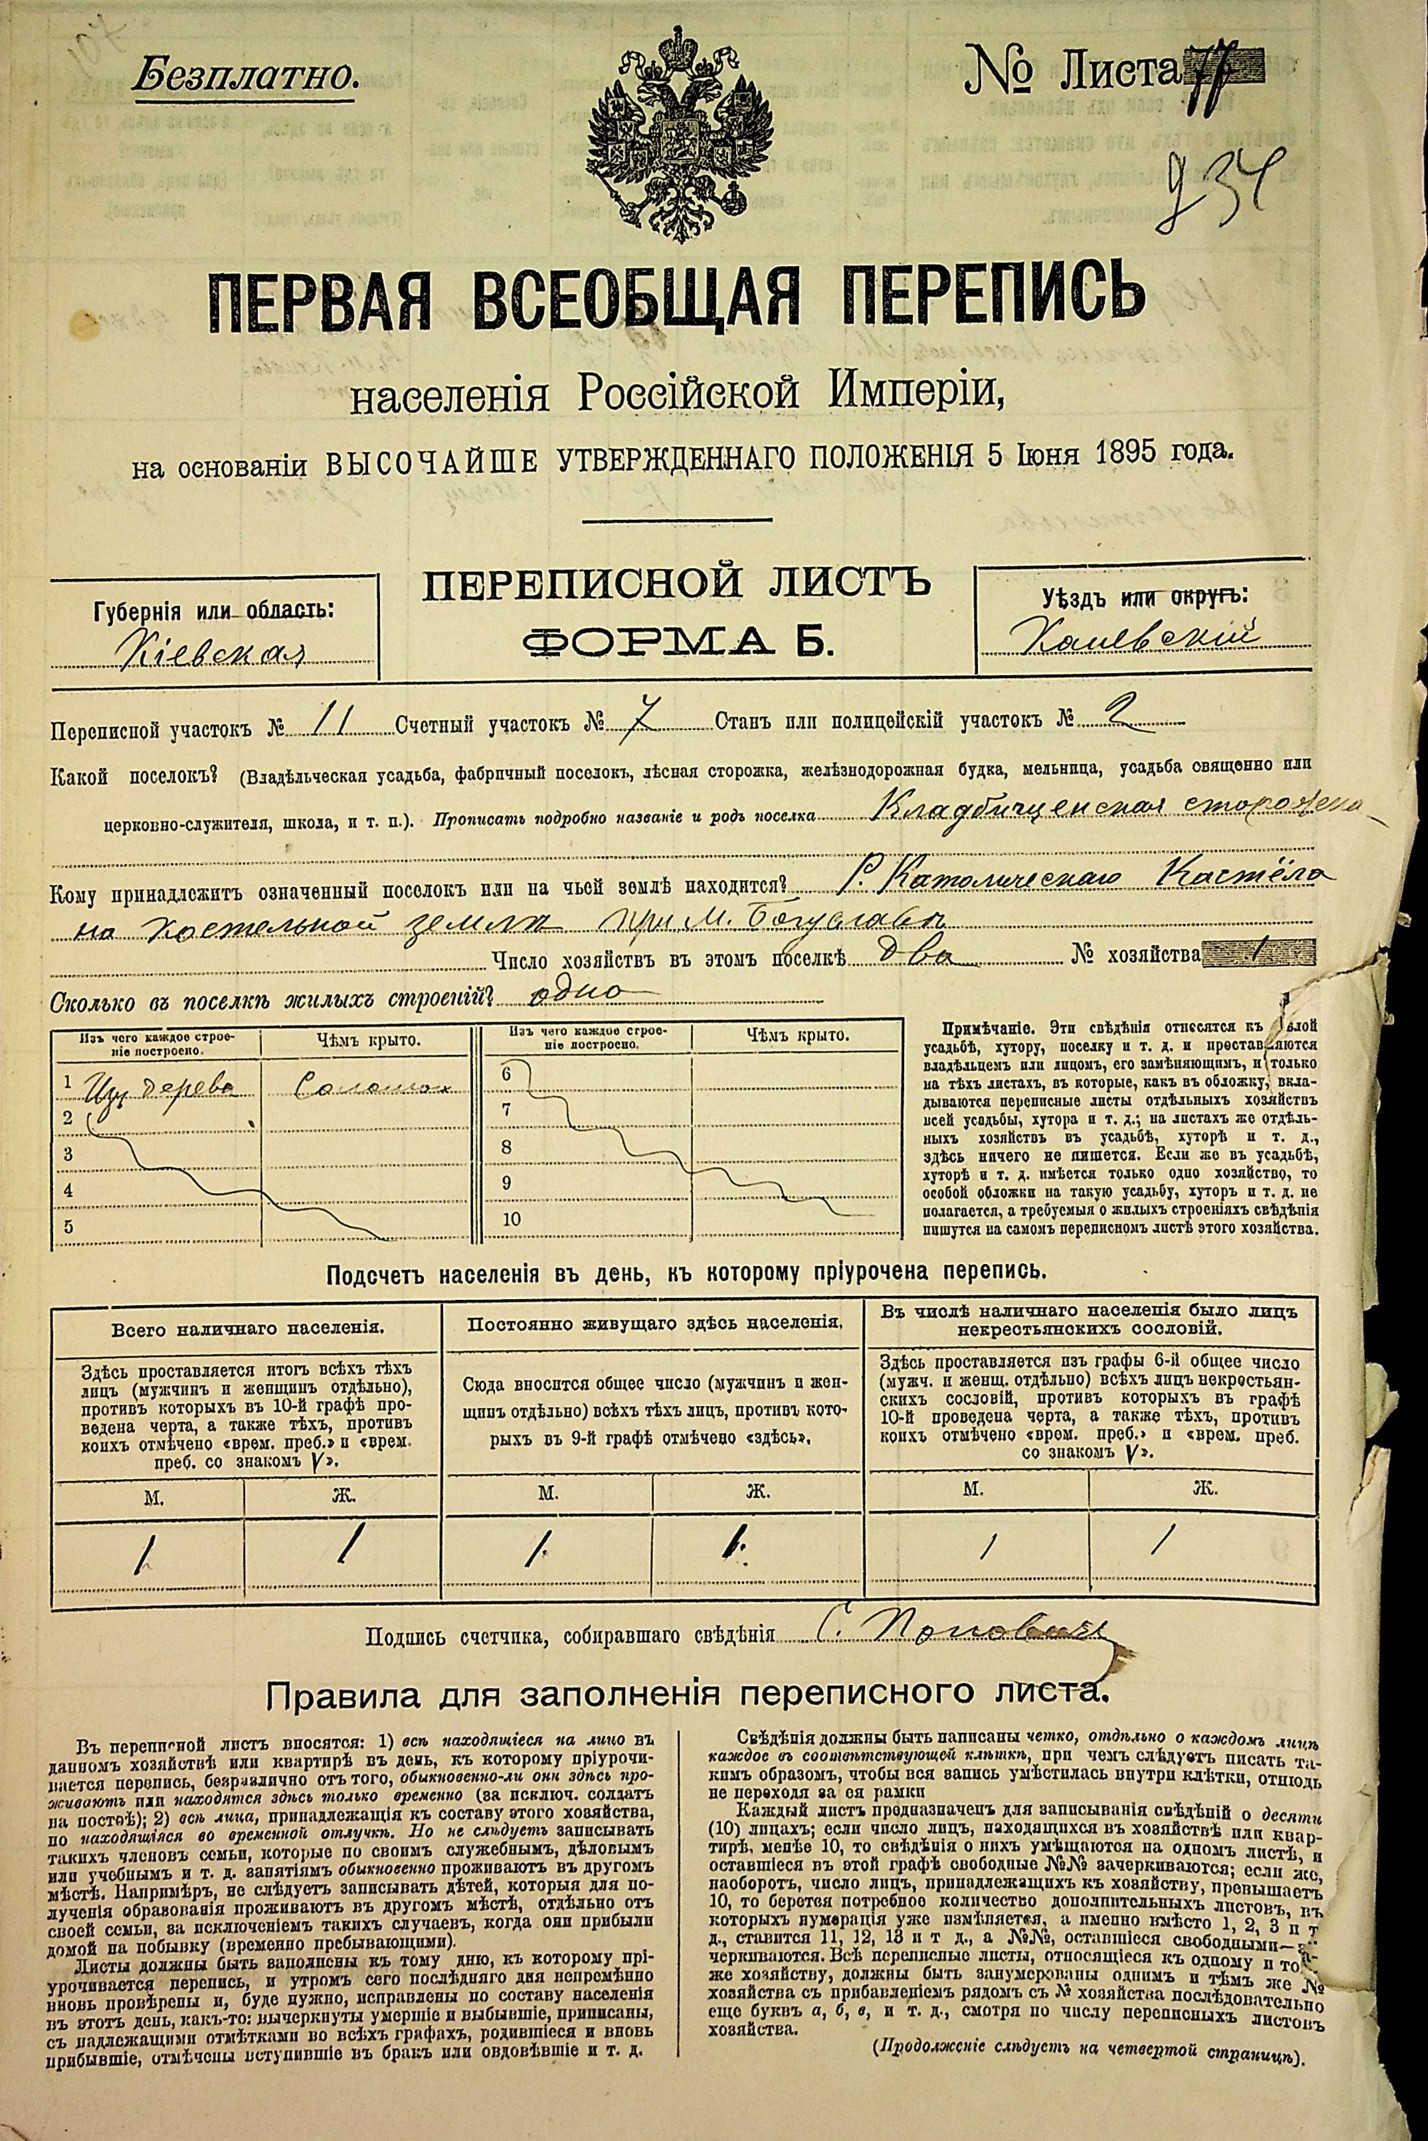 Безплатно.
№ Листа 77
234
ПЕРВАЯ ВСЕОБЩАЯ ПЕРЕПИСЬ
населенія Россійской Имперіи,
на основаніи ВЫСОЧАЙШЕ УТВЕРЖДЕННАГО ПОЛОЖЕНІЯ 5 Іюня 1895 года.
ПЕРЕПИСНОЙ ЛИСТЪ
ФОРМА Б.
Губернія или область:
Кіевская
Уѣздъ или округъ:
Каневскій
Переписной участокъ № 11 Счетный участокъ № 7 Станъ или полицейскій участокъ № 2
Какой поселокъ? (Владѣльческая усадьба, фабричный поселокъ, лѣсная сторожка, желѣзнодорожная будка, мельница, усадьба священно или
церковно-служителя, школа, и т. п.). Прописать подробно названіе и родъ поселка Кладбищенская сторожка
Кому принадлежитъ означенный поселокъ или на чьей землѣ находится? Р. Католическаго Костёла
на костельной землѣ при М. Богуславѣ
Число хозяйствъ въ этомъ поселкѣ два № хозяйства 1
Сколько въ поселкѣ жилыхъ строеній? одно
Изъ чего каждое строеніе построено. Чѣмъ крыто. Изъ чего каждое строеніе построено. Чѣмъ крыто.
1 Изъ дерева Соломой 6
2 7
3 8
4 9
5 10
Примѣчаніе. Эти свѣдѣнія относятся къ цѣлой
усадьбѣ, хутору, поселку и т. д. и проставляются
владѣльцемъ или лицомъ, его замѣняющимъ, и только
на тѣхъ листахъ, въ которые, какъ въ обложку, вкла-
дываются переписные листы отдѣльныхъ хозяйствъ
всей усадьбы, хутора и т. д.; на листахъ же отдѣль-
ныхъ хозяйствъ въ усадьбѣ, хуторѣ и т. д.,
здѣсь ничего не пишется. Если же въ усадьбѣ,
хуторѣ и т. д. имѣется только одно хозяйство, то
особой обложки на такую усадьбу, хуторъ и т. д. не
полагается, а требуемыя о жилыхъ строеніяхъ свѣдѣнія
пишутся на самомъ переписномъ листѣ этого хозяйства.
Подсчетъ населенія въ день, къ которому пріурочена перепись.
Всего наличнаго населенія.
Здѣсь проставляется итогъ всѣхъ тѣхъ
лицъ (мужчинъ и женщинъ отдѣльно),
противъ которыхъ въ 10-й графѣ про-
ведена черта, а также тѣхъ, противъ
коихъ отмѣчено «врем. преб.» и «врем.
преб. со знакомъ V».
Постоянно живущаго здѣсь населенія.
Сюда вносится общее число (мужчинъ и жен-
щинъ отдѣльно) всѣхъ тѣхъ лицъ, противъ кото-
рыхъ въ 9-й графѣ отмѣчено «здѣсь».
Въ числѣ наличнаго населенія было лицъ
некрестьянскихъ сословій.
Здѣсь проставляется изъ графы 6-й общее число
(мужч. и женщ. отдѣльно) всѣхъ лицъ некрестьян-
скихъ сословій, противъ которыхъ въ графѣ
10-й проведена черта, а также тѣхъ, противъ
коихъ отмѣчено «врем. преб.» и «врем. преб.
со знакомъ V».
М. Ж. М. Ж. М. Ж.
1 1 1 1 1 1
Подпись счетчика, собиравшаго свѣдѣнія С. Поповичъ
Правила для заполненія переписного листа.
Въ переписной листъ вносятся: 1) всѣ находящіеся на лицо въ
данномъ хозяйствѣ или квартирѣ въ день, къ которому пріурочи-
вается перепись, безразлично отъ того, обыкновенно-ли они здѣсь про-
живаютъ или находятся здѣсь только временно (за исключ. солдатъ
на постоѣ); 2) всѣ лица, принадлежащія къ составу этого хозяйства,
но находящіяся во временной отлучкѣ. Но не слѣдуетъ записывать
такихъ членовъ семьи, которые по своимъ служебнымъ, дѣловымъ
или учебнымъ и т. д. занятіямъ обыкновенно проживаютъ въ другомъ
мѣстѣ. Напримѣръ, не слѣдуетъ записывать дѣтей, которыя для по-
лученія образованія проживаютъ въ другомъ мѣстѣ, отдѣльно отъ
своей семьи, за исключеніемъ такихъ случаевъ, когда они прибыли
домой на побывку (временно пребывающими).
Листы должны быть заполнены къ тому дню, къ которому прі-
урочивается перепись, и утромъ сего послѣдняго дня непремѣнно
вновь провѣрены и, буде нужно, исправлены по составу населенія
въ этотъ день, какъ-то: вычеркнуты умершіе и выбывшіе, приписаны,
съ надлежащими отмѣтками во всѣхъ графахъ, родившіеся и вновь
прибывшіе, отмѣчены вступившіе въ бракъ или овдовѣвшіе и т. д.
Свѣдѣнія должны быть написаны четко, отдѣльно о каждомъ лицѣ
каждое въ соотвѣтствующей клѣткѣ, при чемъ слѣдуетъ писать та-
кимъ образомъ, чтобы вся запись умѣстилась внутри клѣтки, отнюдь
не переходя за ея рамки
Каждый листъ предназначенъ для записыванія свѣдѣній о десяти
(10) лицахъ; если число лицъ, находящихся въ хозяйствѣ или квар-
тирѣ, менѣе 10, то свѣдѣнія о нихъ умѣщаются на одномъ листѣ, и
оставшіеся въ этой графѣ свободные №№ зачеркиваются; если же,
наоборотъ, число лицъ, принадлежащихъ къ хозяйству, превышаетъ
10, то берется потребное количество дополнительныхъ листовъ, въ
которыхъ нумерація уже измѣняется, а именно вмѣсто 1, 2, 3 и т
д., ставится 11, 12, 13 и т д., а №№, оставшіеся свободными—за-
черкиваются. Всѣ переписные листы, относящіеся къ одному и тому-
же хозяйству, должны быть занумерованы однимъ и тѣмъ же №
хозяйства съ прибавленіемъ рядомъ съ № хозяйства послѣдовательно
еще буквъ а, б, в, и т. д., смотря по числу переписныхъ листовъ
хозяйства.
(Продолженіе слѣдуетъ на четвертой страницѣ).